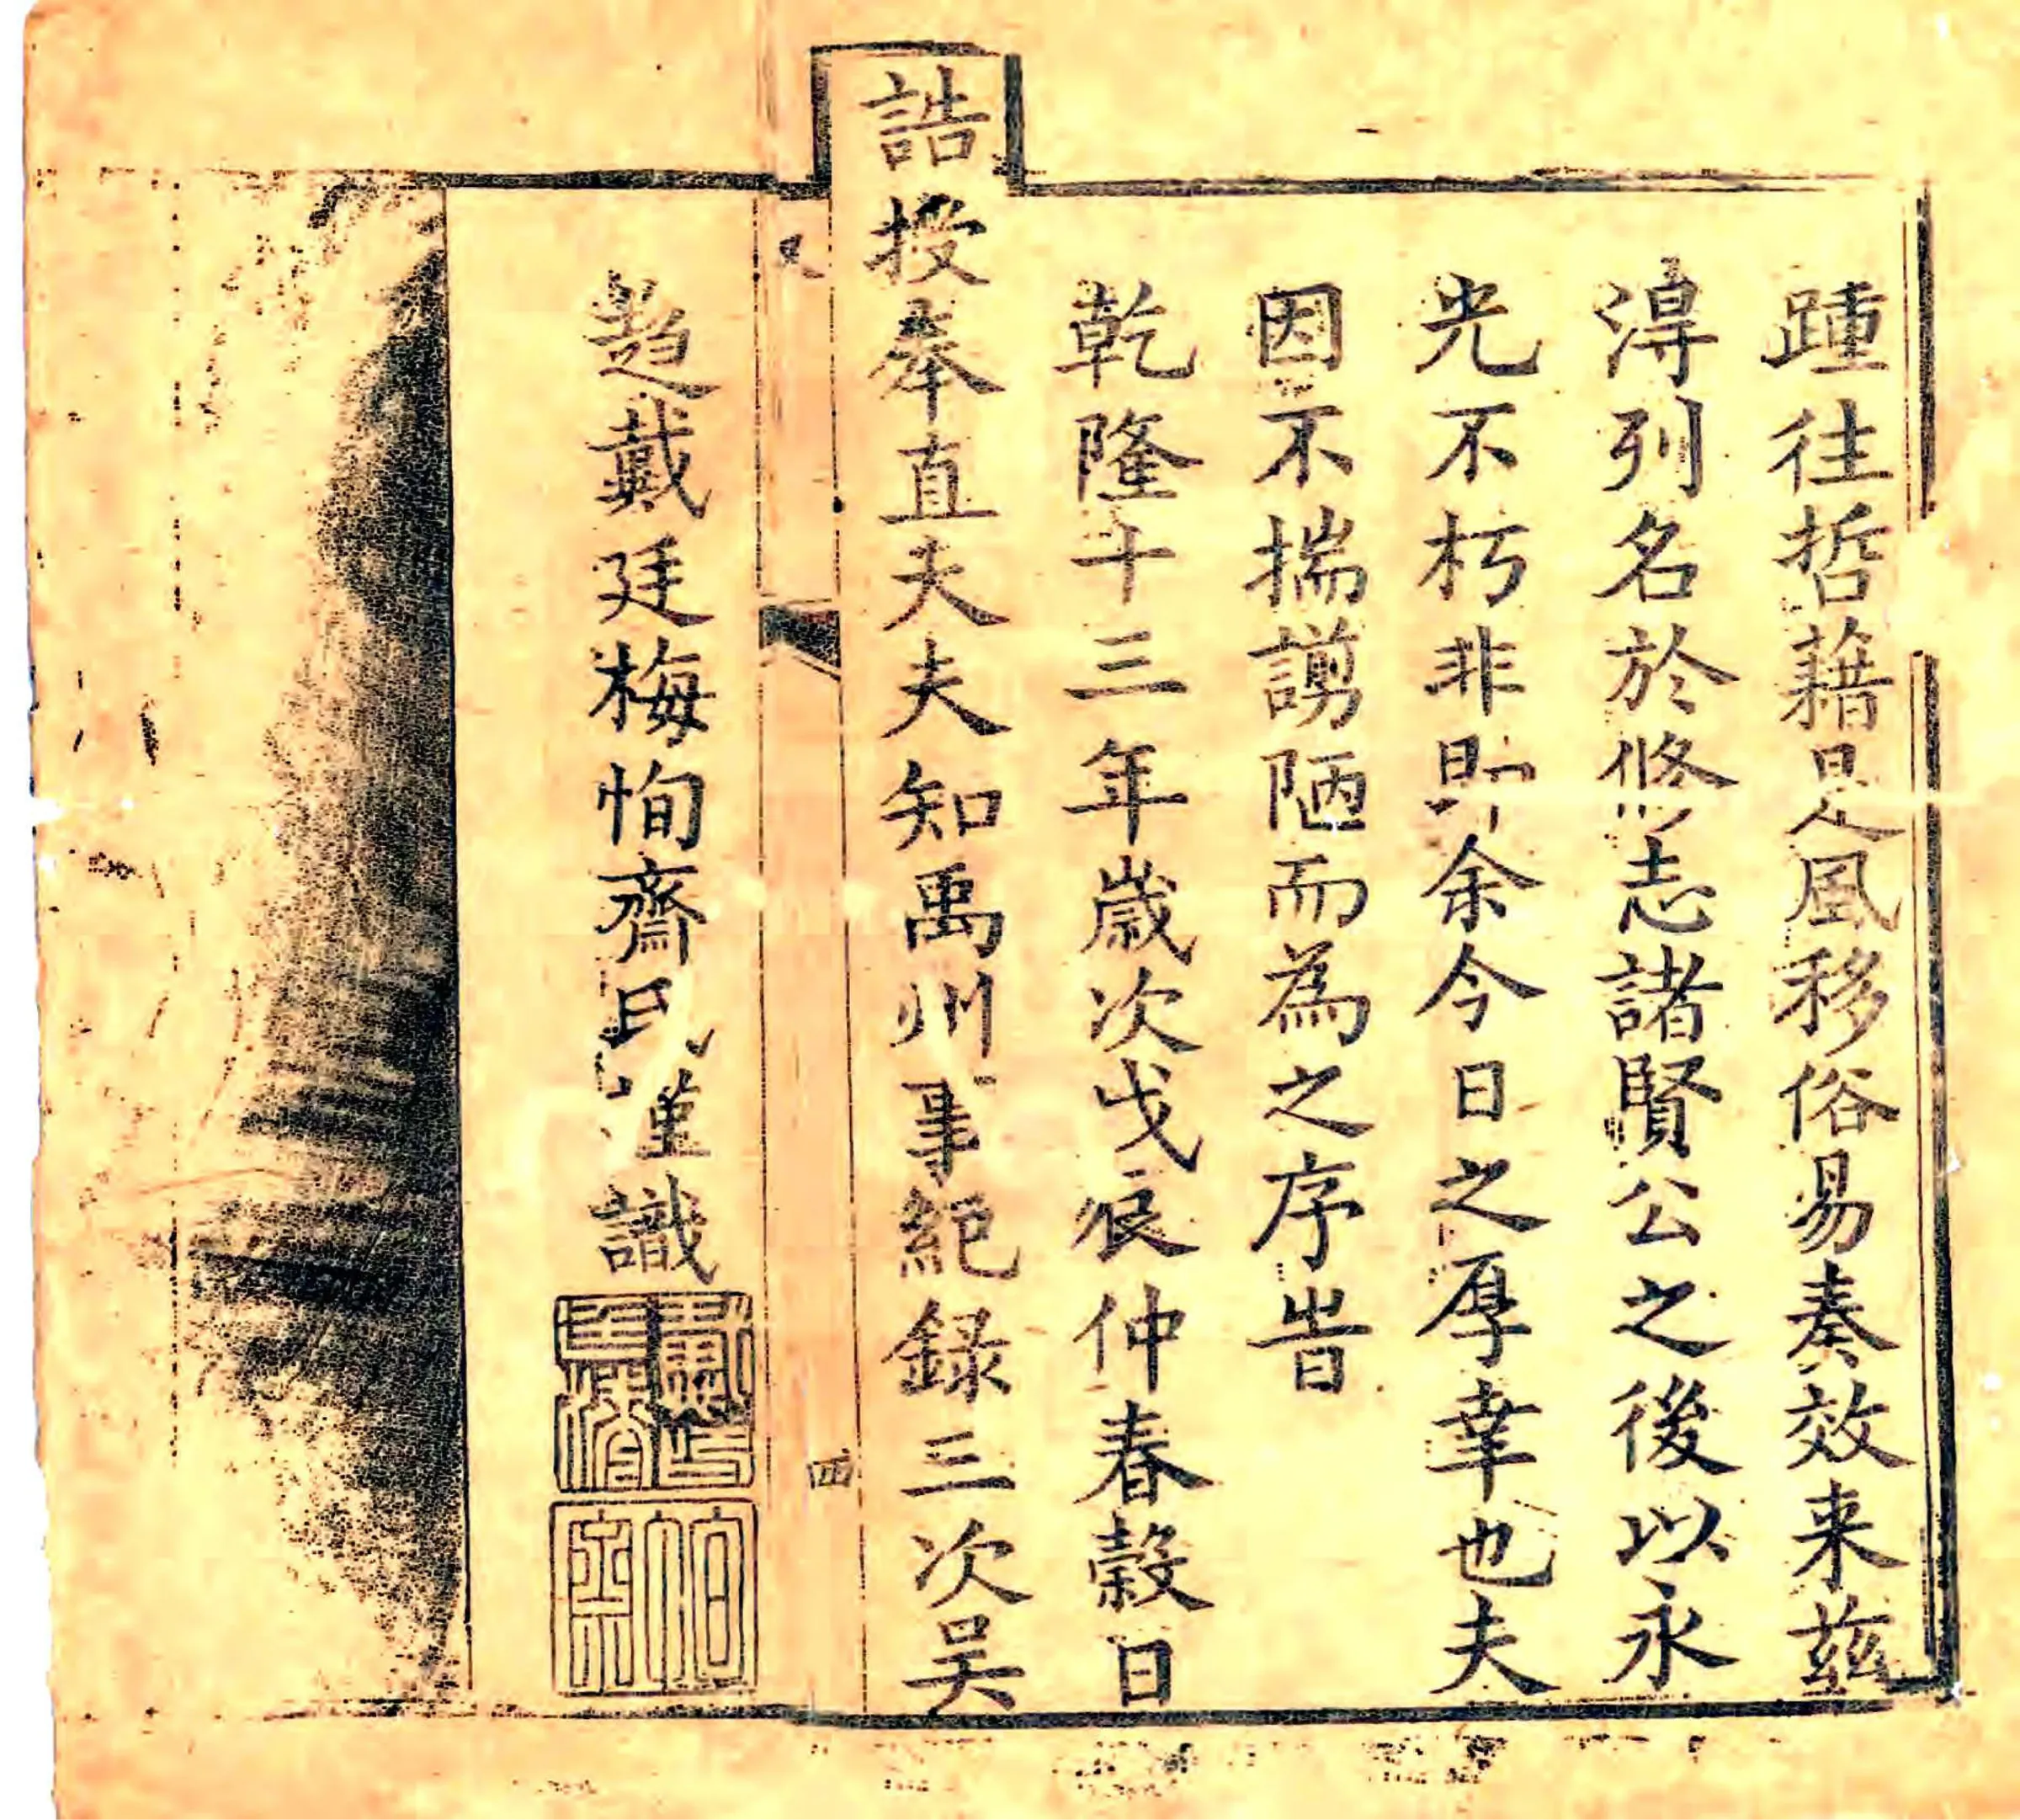 踵往哲藉是風移俗易奏效来茲
淂列名於修志諸賢公之後以永
光不朽非即余今日之厚幸也夫
因不揣謭陋而為之序旹
乾隆十三年歲次戊辰仲春穀日
誥授奉直夫夫知禹州事紀録三次吴
趍戴廷梅恂齋氏謹識
四